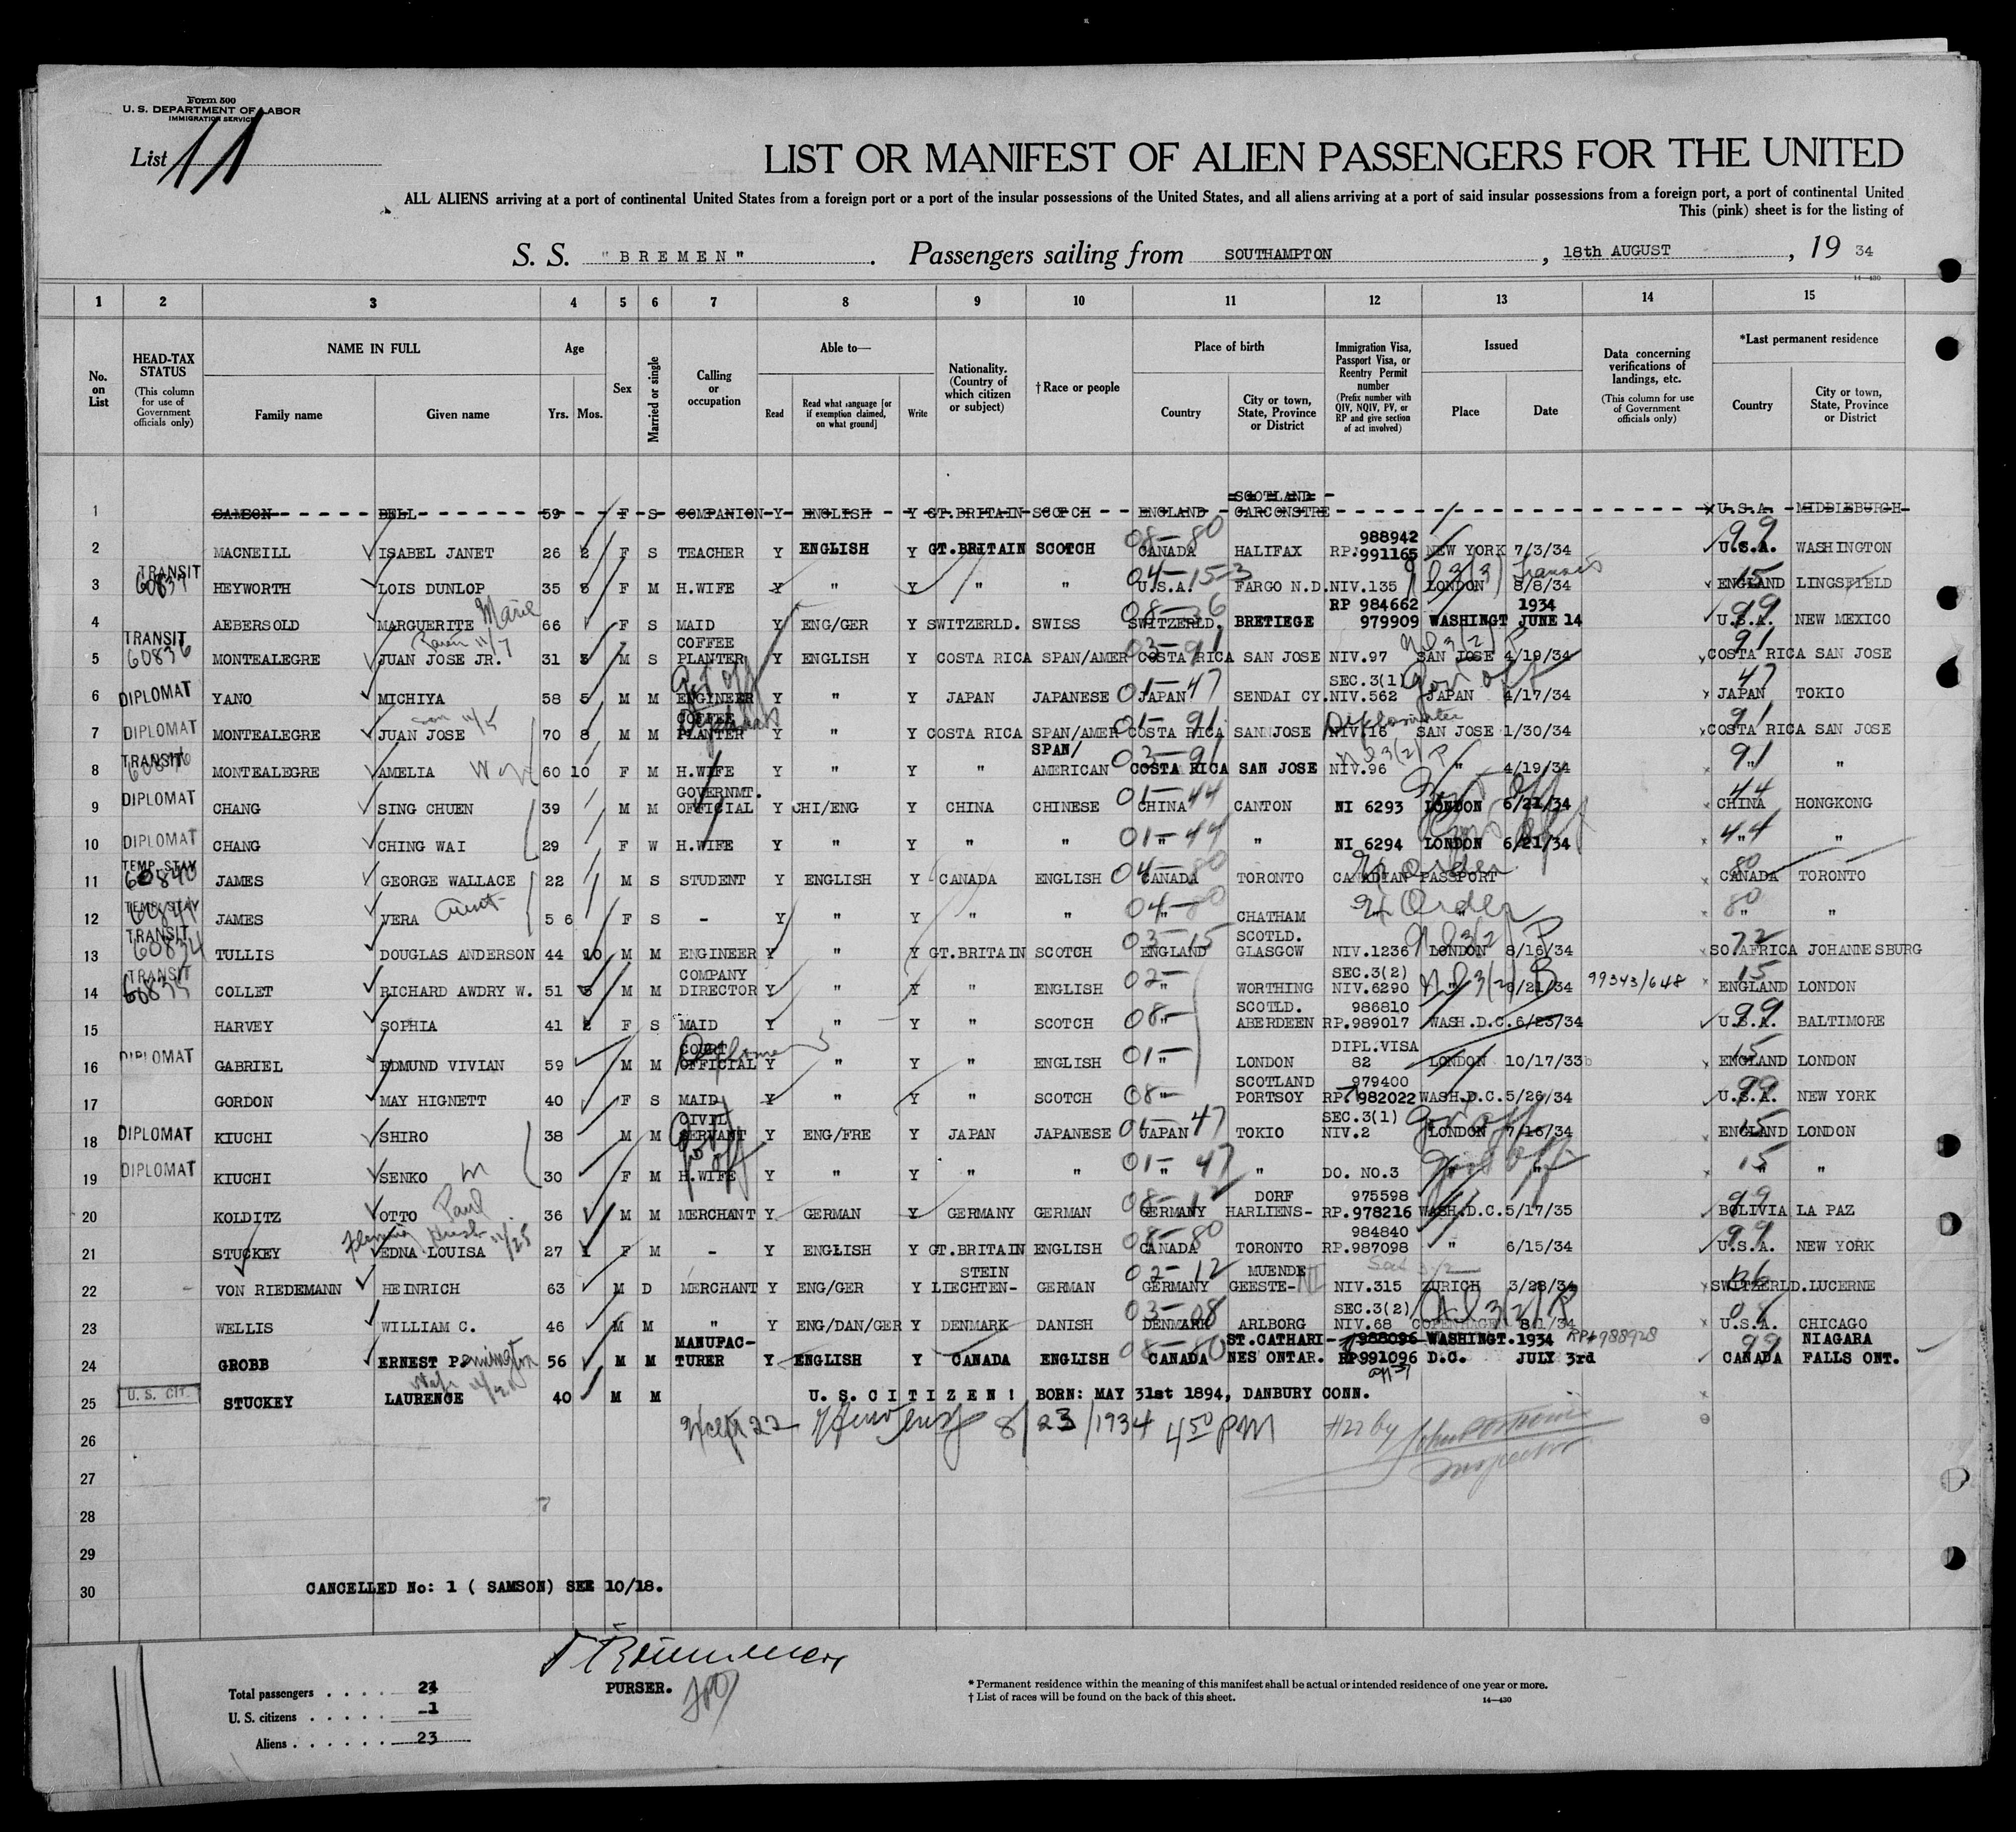 Form 500
U. S. DEPARTMENT OF LABOR
IMMIGRATION SERVICE
List 11
LIST OR MANIFEST OF ALIEN PASSENGERS FOR THE UNITED
ALL ALIENS arriving at a port of continental United States from a foreign port or a port of the insular possessions of the United States, and all aliens arriving at a port of said insular possessions from a foreign port, a port of continental United
This (pink) sheet is for the listing of
S. S. "BREMEN" . Passengers sailing from SOUTHAMPTON , 18th AUGUST , 19 34
14—430
1 2 3 4 5 6 7 8 9 10 11 12 13 14 15
No. on List
HEAD-TAX STATUS (This column for use of Government officials only)
NAME IN FULL Family name Given name
Age Yrs. Mos.
Sex
Married or single
Calling or occupation
Able to— Read Read what language [or if exemption claimed, on what ground] Write
Nationality. (Country of which citizen or subject)
† Race or people
Place of birth Country City or town, State, Province or District
Immigration Visa, Passport Visa, or Reentry Permit number (Prefix number with QIV, NQIV, PV, or RP and give section of act involved)
Issued Place Date
Data concerning verifications of landings, etc. (This column for use of Government officials only)
*Last permanent residence Country City or town, State, Province or District
1 SAMSON BELL 59 F S COMPANION Y ENGLISH Y GT.BRITAIN SCOTCH ENGLAND SCOTLAND U.S.A. MIDDLEBURGH
2 MACNEILL ISABEL JANET 26 2 F S TEACHER Y ENGLISH Y GT.BRITAIN SCOTCH 08-80 CANADA HALIFAX 988942 RP.991165 NEW YORK 7/3/34 99 U.S.A. WASHINGTON
3 TRANSIT 60837 HEYWORTH LOIS DUNLOP 35 5 F M H.WIFE Y " Y " " 04-15-3 U.S.A. FARGO N.D. NIV.135 LONDON 8/8/34 15 ENGLAND LINGSFIELD
4 AEBERSOLD MARGUERITE Marie 66 F S MAID Y ENG/GER Y SWITZERLD. SWISS 08-36 SWITZERLD. BRETIEGE RP 984662 979909 WASHINGT 1934 JUNE 14 99 U.S.A. NEW MEXICO
5 TRANSIT 60836 MONTEALEGRE JUAN JOSE JR. 31 3 M S COFFEE PLANTER Y ENGLISH Y COSTA RICA SPAN/AMER 03-91 COSTA RICA SAN JOSE NIV.97 SAN JOSE 4/19/34 91 COSTA RICA SAN JOSE
6 DIPLOMAT YANO MICHIYA 58 5 M M ENGINEER Y " Y JAPAN JAPANESE 01-47 JAPAN SENDAI CY. SEC.3(1) NIV.562 JAPAN 4/17/34 47 JAPAN TOKIO
7 DIPLOMAT MONTEALEGRE JUAN JOSE 70 8 M M COFFEE PLANTER Y " Y COSTA RICA SPAN/AMER 01-91 COSTA RICA SANNJOSE NIV.16 SAN JOSE 1/30/34 91 COSTA RICA SAN JOSE
8 TRANSIT MONTEALEGRE AMELIA Wife 60 10 F M H.WIFE Y " Y " SPAN/ AMERICAN 03-91 COSTA RICA SAN JOSE NIV.96 " 4/19/34 91 " "
9 DIPLOMAT CHANG SING CHUEN 39 M M GOVERNMT. OFFICIAL Y CHI/ENG Y CHINA CHINESE 01-44 CHINA CANTON NI 6293 LONDON 6/21/34 44 CHINA HONGKONG
10 DIPLOMAT CHANG CHING WAI 29 F W H.WIFE Y " Y " " 01-44 " " NI 6294 LONDON 6/21/34 44 " "
11 TEMP. STAY 60840 JAMES GEORGE WALLACE 22 M S STUDENT Y ENGLISH Y CANADA ENGLISH 04-80 CANADA TORONTO CANADIAN PASSPORT 80 CANADA TORONTO
12 TEMP. STAY JAMES VERA Aunt 5 6 F S - Y " Y " " 04-80 " CHATHAM Ex Order " 80 " "
13 TRANSIT 60834 TULLIS DOUGLAS ANDERSON 44 10 M M ENGINEER Y " Y GT.BRITAIN SCOTCH 03-15 ENGLAND SCOTLD. GLASGOW NIV.1236 LONDON 8/16/34 72 SO.AFRICA JOHANNESBURG
14 TRANSIT 60835 COLLET RICHARD AWDRY W. 51 5 M M COMPANY DIRECTOR Y " Y " ENGLISH 02- " WORTHING SEC.3(2) NIV.6290 " 6/21/34 99343/648 15 ENGLAND LONDON
15 HARVEY SOPHIA 41 2 F S MAID Y " Y " SCOTCH 08- " SCOTLD. ABERDEEN 986810 RP.989017 WASH.D.C. 6/23/34 99 U.S.A. BALTIMORE
16 DIPLOMAT GABRIEL EDMUND VIVIAN 59 M M COURT OFFICIAL Y " Y " ENGLISH 01- " LONDON DIPL.VISA 82 LONDON 10/17/33 15 ENGLAND LONDON
17 GORDON MAY HIGNETT 40 F S MAID Y " Y " SCOTCH 08- " SCOTLAND PORTSOY 979400 RP. 982022 WASH.D.C. 5/26/34 99 U.S.A. NEW YORK
18 DIPLOMAT KIUCHI SHIRO 38 M M CIVIL SERVANT Y ENG/FRE Y JAPAN JAPANESE 01-47 JAPAN TOKIO SEC.3(1) NIV.2 LONDON 7/16/34 15 ENGLAND LONDON
19 DIPLOMAT KIUCHI SENKO 30 F M H.WIFE Y " Y " " 01-47 " " DO. NO.3 " " 15 " "
20 KOLDITZ OTTO Paul 36 M M MERCHANT Y GERMAN Y GERMANY GERMAN 08-12 GERMANY DORF HARLIENS- 975598 RP.978216 WASH.D.C. 5/17/35 99 BOLIVIA LA PAZ
21 STUCKEY EDNA LOUISA 27 1 F M - Y ENGLISH Y GT.BRITAIN ENGLISH 08-80 CANADA TORONTO 984840 RP.987098 " 6/15/34 99 U.S.A. NEW YORK
22 VON RIEDEMANN HEINRICH 63 M D MERCHANT Y ENG/GER Y STEIN LIECHTEN- GERMAN 02-12 GERMANY MUENDE GEESTE- NIV.315 ZURICH 3/28/34 36 SWITZERLD. LUCERNE
23 WELLIS WILLIAM C. 46 M M " Y ENG/DAN/GER Y DENMARK DANISH 03-08 DENMARK ARLBORG SEC.3(2) NIV.68 COPENHAGEN 8/1/34 08 U.S.A. CHICAGO
24 GROBB ERNEST P 56 M M MANUFAC- TURER Y ENGLISH Y CANADA ENGLISH 08-80 CANADA ST.CATHARI- NES ONTAR. 988096 RP991096 WASHINGT. D.C. 1934 JULY 3rd RP 988928 99 CANADA NIAGARA FALLS ONT.
25 U.S. CIT. STUCKEY LAURENCE 40 M M U. S. C I T I Z E N ! BORN: MAY 31st 1894, DANBURY CONN.
26 Except 22 8/23/1934 4 50 PM #22 by Inspector
27
28
29
30 CANCELLED No: 1 ( SAMSON) SEE 10/18.
PURSER.
Total passengers . . . . 24
U. S. citizens . . . . . -1
Aliens . . . . . . 23
* Permanent residence within the meaning of this manifest shall be actual or intended residence of one year or more.
† List of races will be found on the back of this sheet.
14—430